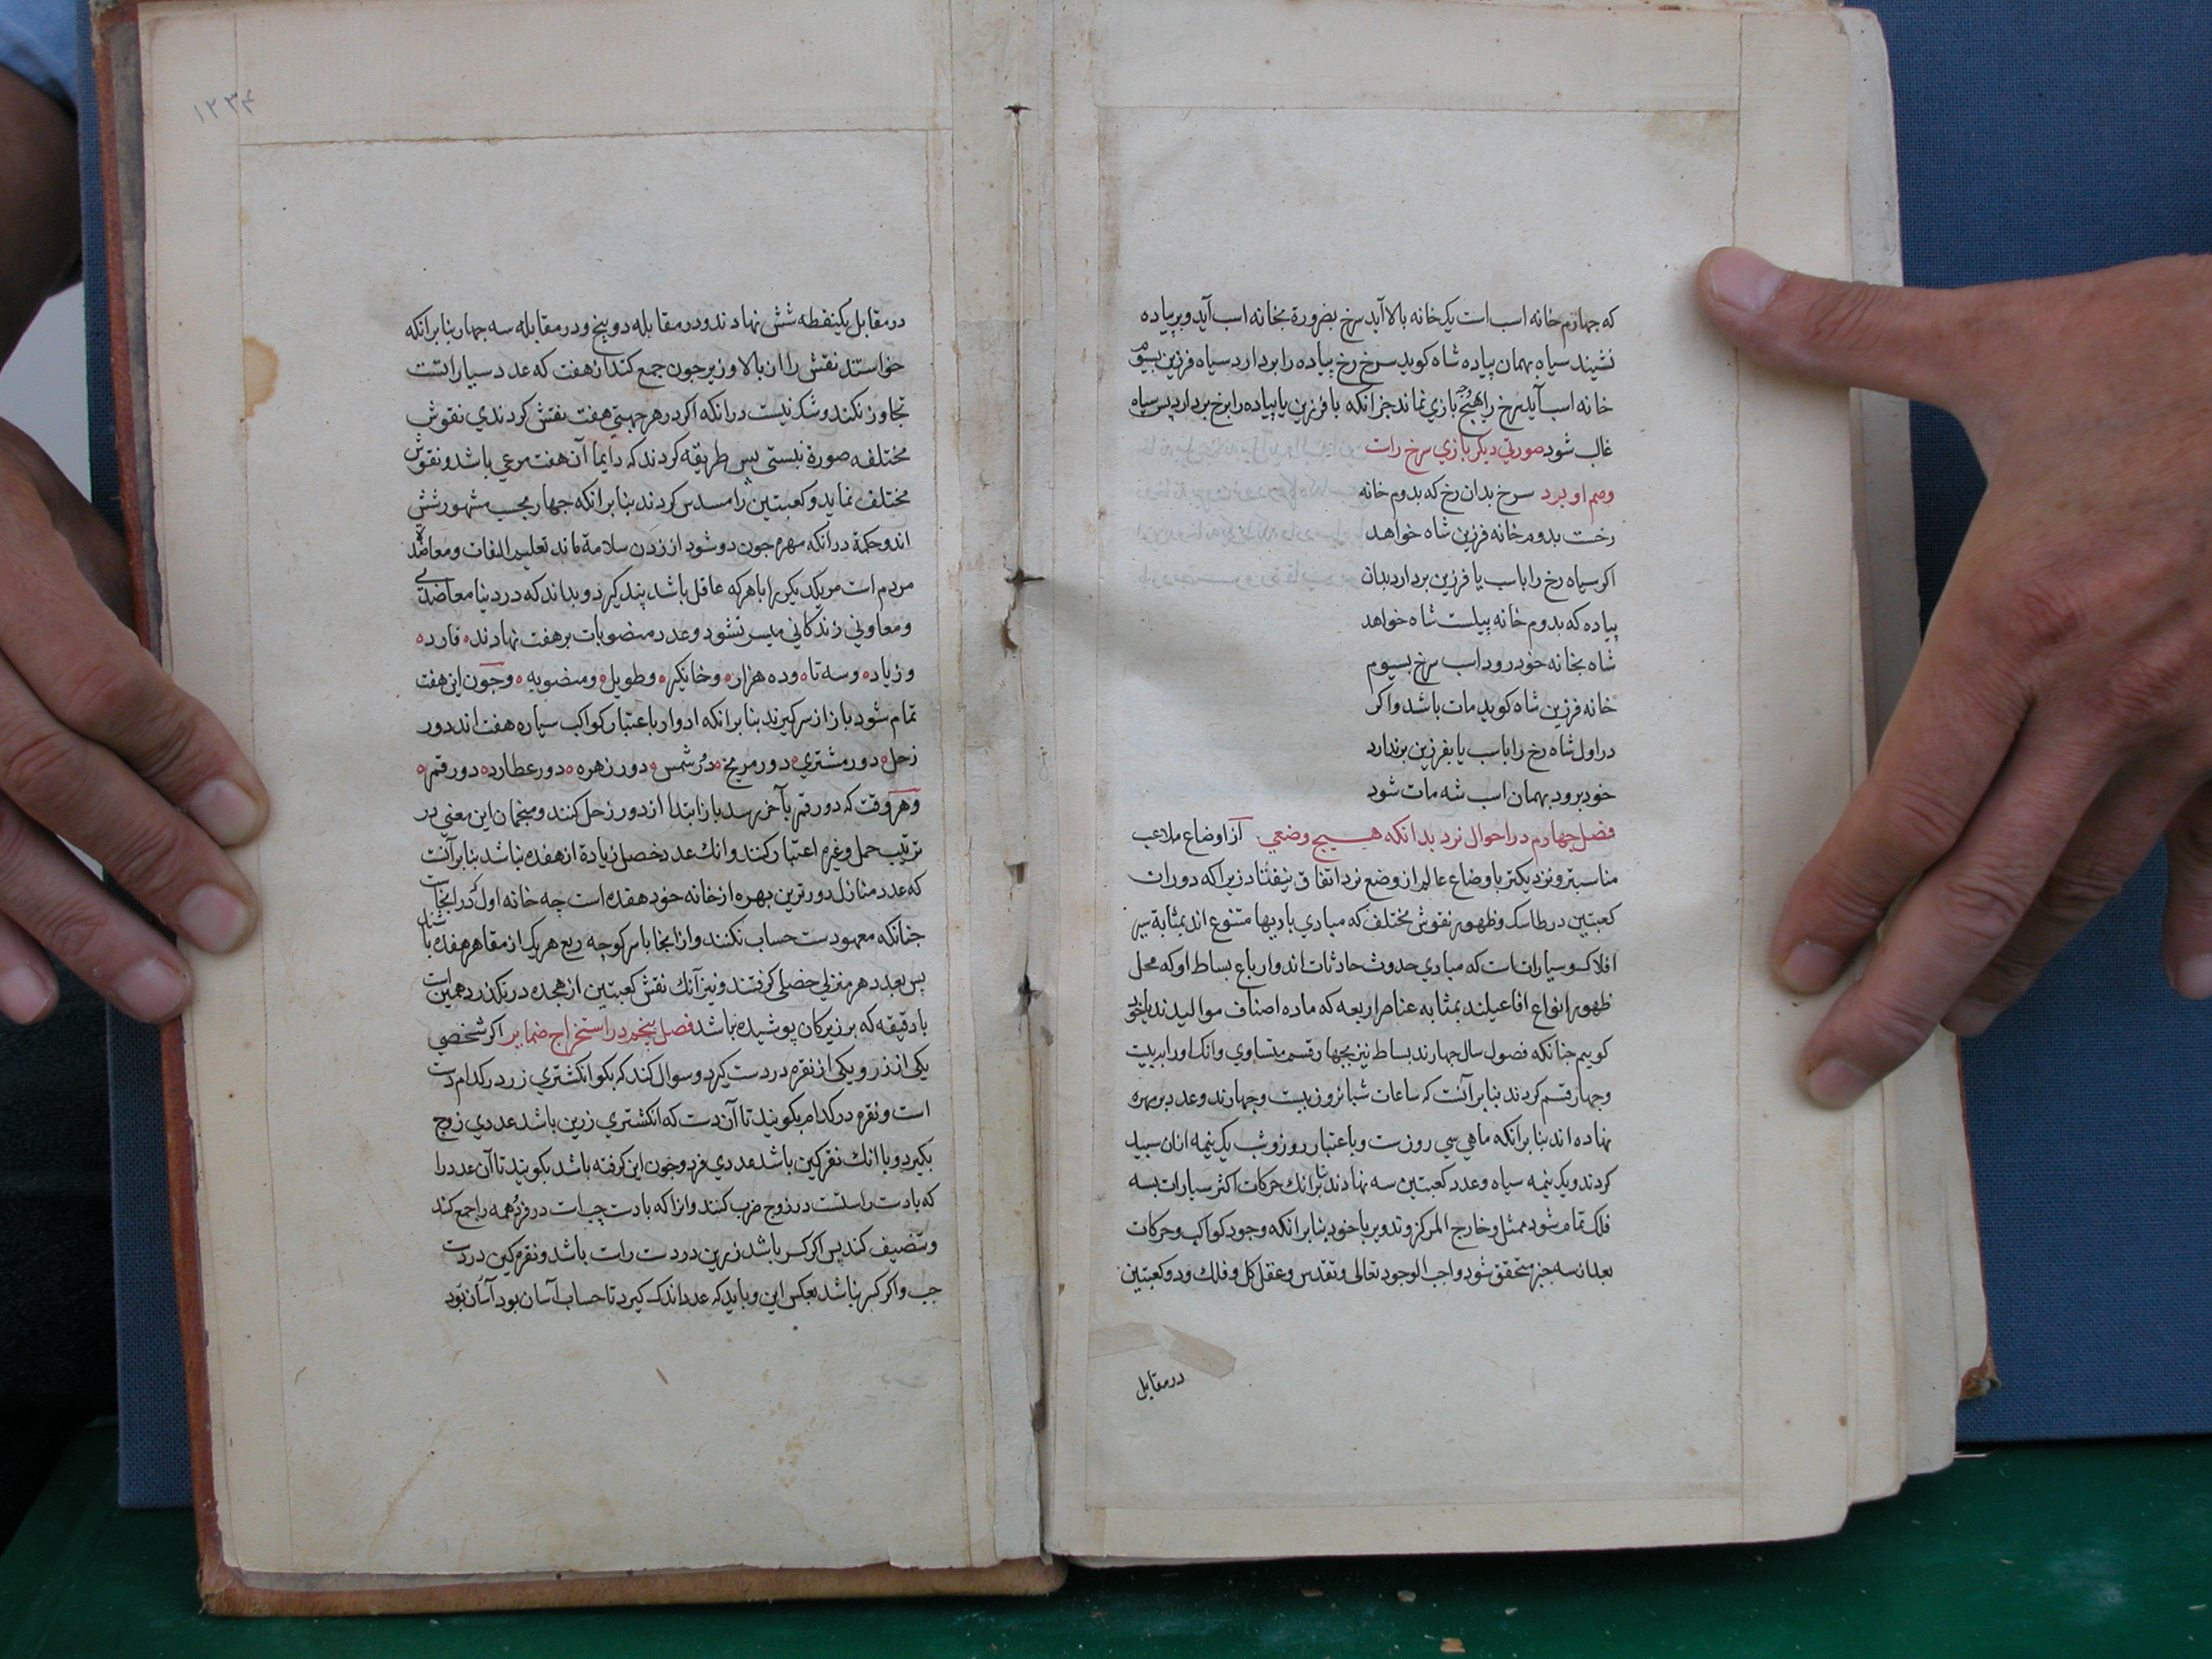 که چهارم خانه اسب است یک خانه بالا آید سرخ بضرورة بخانه اسب آید و بر پیاده
نشیند سیاه بهمان پیاده شاه کوید سرخ رخ پیاده را بردارد سیاه فرزین بسوم
خانه اسب آید سرخ را هیچ بازی نماند جز آنکه با فرزین یا پیاده را برخ بردارد پس سیاه
غالب شود صورتی دیکر بازی سرخ راست
وهم او برد سرخ بدان رخ که بدوم خانه
رخست بدوم خانه فرزین شاه خواهد
اکر سیاه رخ را باسب یا فرزین بردارد بدان
پیاده که بدوم خانه پیلست شاه خواهد
شاه بخانه خود رود اسب سرخ بسیوم
خانه فرزین شاه کوید مات باشد و اکر
در اول شاه رخ را باسب یا بفرزین برندارد
خود برود بهمان اسب شه مات شود
فصل چهارم در احوال نرد بدانکه هیچ وضعی از اوضاع ملاعب
مناسبتر و نزدیکتر باوضاع عالم از وضع نرد اتفاق نیفتاد زیرا که دوران
کعبتین در طاسک و ظهور نقوش مختلف که مبادی بازیها متنوع اند بمثابة سیر
افلاک و سیارات است که مبادی حدوث حادثات اند و ارباع بساط او که محل
ظهور انواع افاعیلند بمثابه عناصر اربعه که ماده اصناف موالیدند یا خود
کوییم چنانکه فصول سال چهارند بساط نیز بچهار قسم متساوی و انک اورا به بیست
و چهار قسم کردند بنابر آنست که ساعات شبانروز بیست و چهارند و عدد بر مهره
نهاده اند بنابر آنکه ماهی سی روزست و باعتبار روز و شب یک نیمه ازان سبید
کردند و یک نیمه سیاه و عدد کعبتین سه نهادند بنابر انک حرکات اکثر سیارات بسه
فلک تمام شود ممثل و خارج المرکز و تدویر یا خود بنابر انکه وجود کواکب و حرکات
بعد از سه چیز متحقق شود واجب الوجود تعالی و تقدس و عقل کل و فلک و دو کعبتین
در مقابل
۱۲۳۴
در مقابل یکنقطه شش نهادند و در مقابله دو پنج و در مقابله سه چهار بنابر انکه
خواستند نقش را از بالا و زیر چون جمع کنند از هفت که عدد سیاراتست
تجاوز نکند و شک نیست در انکه اکر در هر جهتی هفت نقش کردندی نقوش
مختلفه صورة نبستی پس طریقه کردند که دایما آن هفت مرعی باشد و نقوش
مختلف نماید و کعبتین را مسدس کردند بنابر انکه جهات بحسب مشهور شش
اند و حکمة در انکه مهره چون دو شود از زدن سلامة ماند تعلیم التفات و معاضد
مردم است مر یکدیکر را تا هر که عاقل باشد پند کیرد و بداند که در دنیا بی معاضدی
و معاونی زندکانی میسر نشود و عدد منصوبات بر هفت نهادند فارد
و زیاد و سه تا و ده هزار و خانکیر و طویل و منصوبه و چون این هفت
تمام شود باز از سر کیرند بنابر انکه ادوار باعتبار کواکب سیاره هفت اند دور
زحل دور مشتری دور مریخ دور شمس دور زهره دور عطارد دور قمر
و هر وقت که دور قمر بآخر رسد باز ابتدا از دور زحل کنند و منجمان این معنی در
ترتیب حمل و غیره اعتبار کنند و انک عدد خصل زیادة از هفده نباشد بنابر آنست
که عدد منازل دورترین مهره از خانه خود هفده است چه خانه اول را در انجا
چنانکه معهودست حساب نکنند و از انجا با سر کوچه ربع هر یک از مقامر هفده باشد
پس بعدد هر منزلی خصلی کرفتند و نیز آنک نقش کعبتین از هجده در نکذرد همین است
با دقیقه که بر زیرکان پوشیده نباشد فصل پنجم در استخراج ضمایر اکر شخصی
یکی از زر و یکی از نقره در دست کیرد و سوال کند که بکو انکشتری زر در کدام دست
است و نقره در کدام بکویند تا آن دست که انکشتری زرین باشد عددی زوج
بکیرد و با انک نقرکین باشد عددی فرد و چون این کرفته باشد بکویند تا آن عدد را
که با دست راستست در زوج ضرب کنند و انرا که با دست چپ است در فرد و همه را جمع کند
و تنصیف کند پس اکر کسر باشد زرین در دست راست باشد و نقره کین در دست
چپ و اکر کسر نباشد بعکس این و باید که عدد اندک کیرد تا حساب آسان بود آسان بود